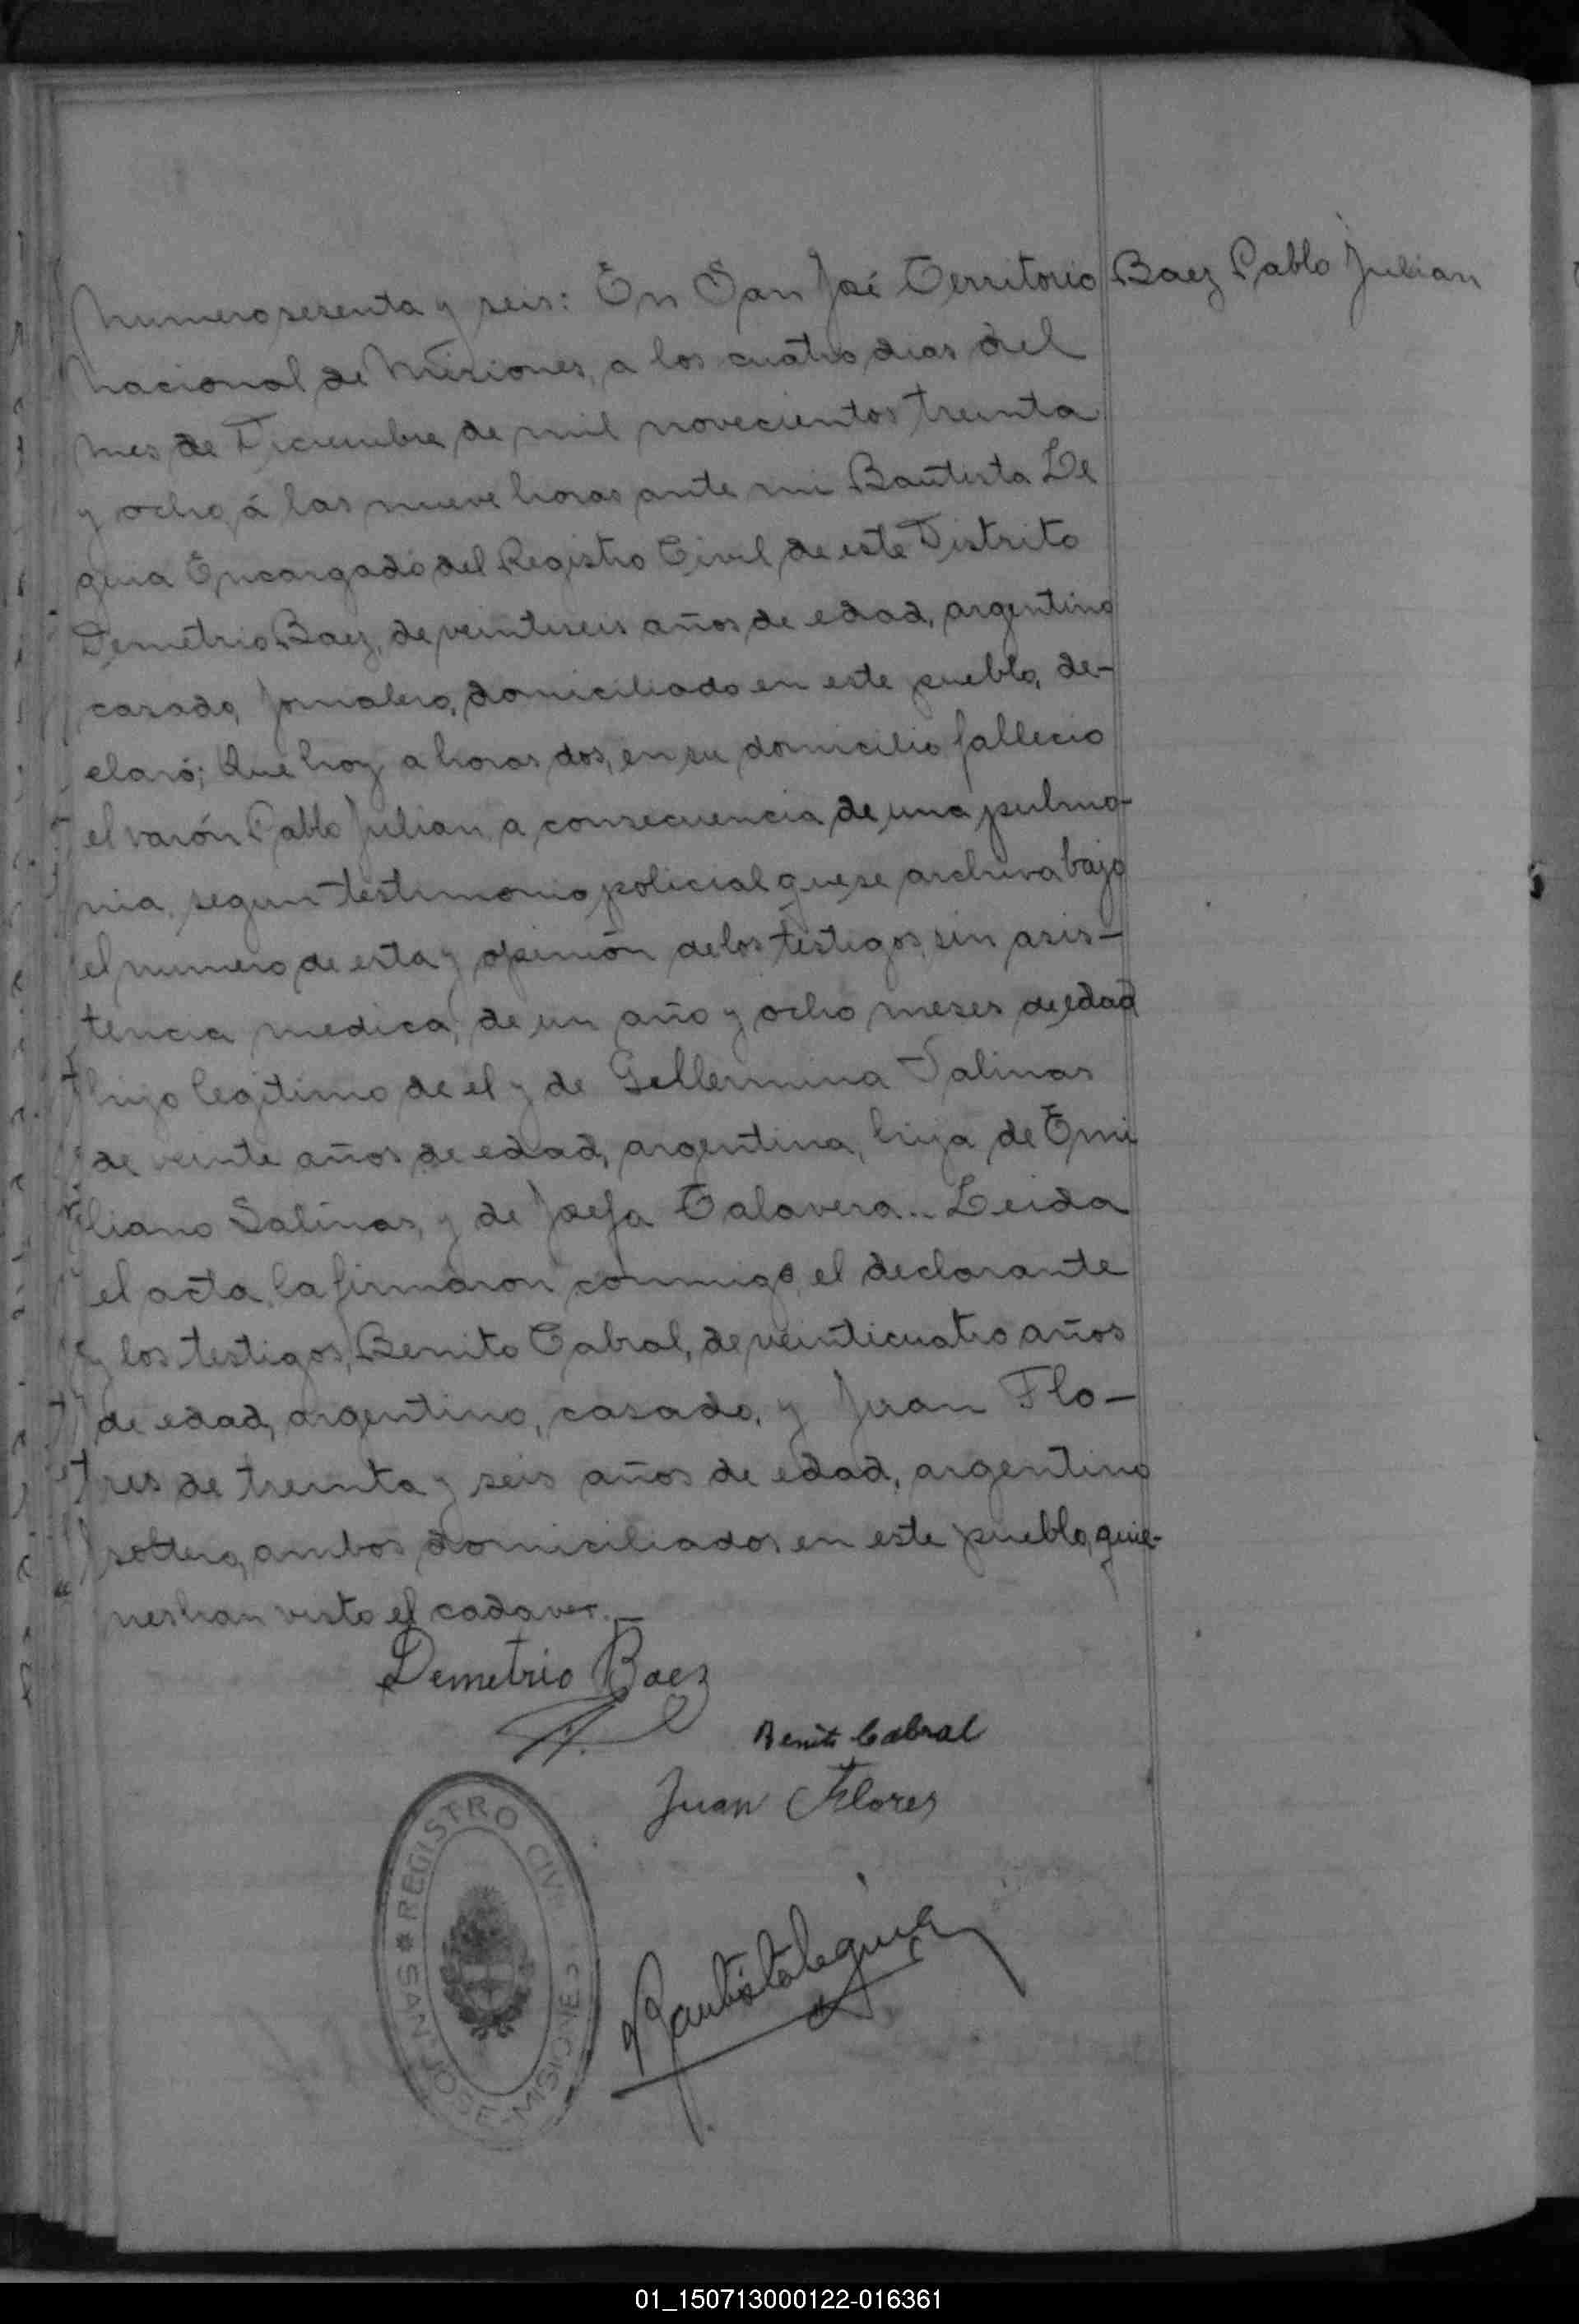 Numero sesenta y seis: En San José Territorio
Baez Pablo Julian
Nacional de Misiones, a los cuatro dias del
mes de Diciembre de mil novecientos treinta
y ocho, á las nueve horas ante mi Bautista Le
guia Encargado del Registro Civil de este Distrito
Demetrio Baez, de veintiseis años de edad, argentino
casado, jornalero, domiciliado en este pueblo, de-
claró; Que hoy a horas dos, en su domicilio fallecio
el varón Pablo Julian, a consecuencia de una pulmo-
nia, segun testimonio policial que se archiva bajo
el numero de esta y opinión de los testigos, sin asis-
tencia medica, de un año y ocho meses de edad
hijo legitimo de el y de Gellermina Salinas
de veinte años de edad, argentina, hija de Emi
liano Salinas, y de Josefa Talavera.. Leida
el acta, la firmaron conmigo, el declarante
y los testigos, Benito Cabral, de veinticuatro años
de edad, argentino, casado, y Juan Flo-
res de treinta y seis años de edad, argentino
soltero, ambos domiciliados en este pueblo, quie-
nes han visto el cadaver.—
Demetrio Baez
Benito Cabral
Juan Flores
Bautista Leguia
REGISTRO CIVIL
SAN JOSE-MISIONES
01_150713000122-016361